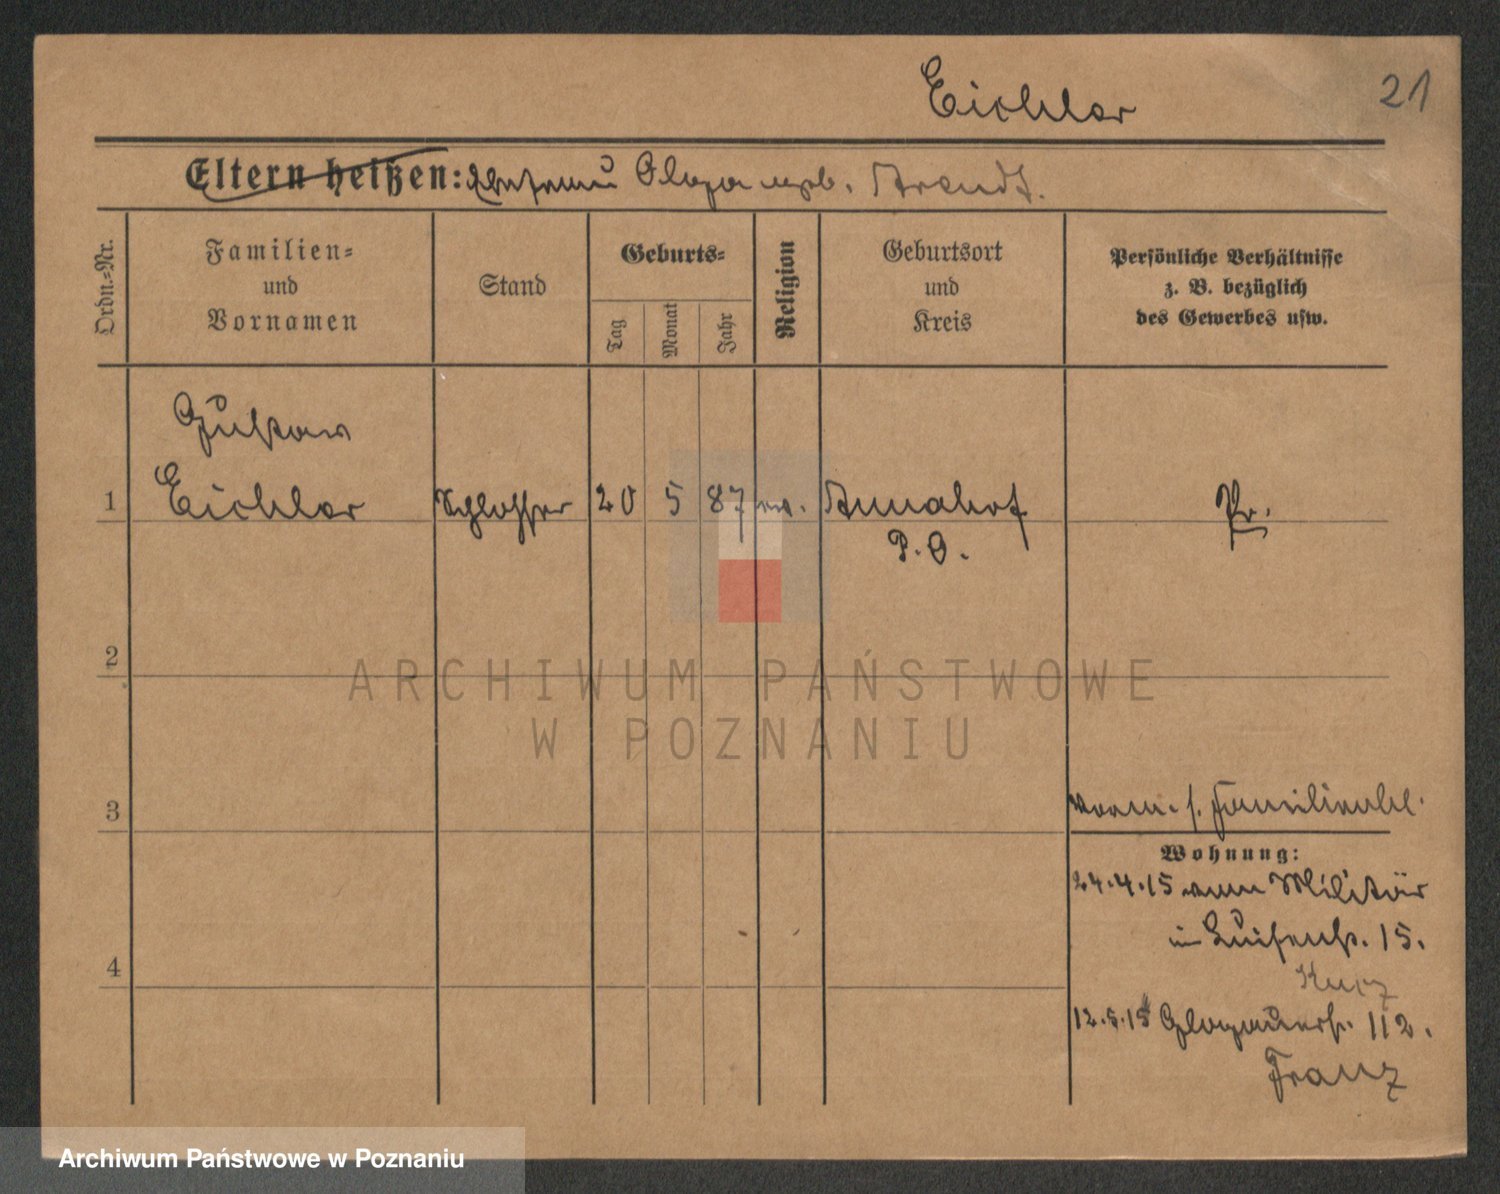 Eichler
21
Eltern heißen: Ehefrau Olga geb. Arendt.
Ordn.-Nr.
Familien-
und
Vornamen
Stand
Geburts-
Tag
Monat
Jahr
Religion
Geburtsort
und
Kreis
Persönliche Verhältnisse
z. B. bezüglich
des Gewerbes usw.
Gustav
1 Eichler Schlosser 20 5 87 ev. Annahof Pr.
P. O.
2
ARCHIWUM PAŃSTWOWE
W POZNANIU
3
vorm. s. Familienbl.
Wohnung:
24.4.15 vom Militär
in Luisenstr. 15.
4
Kurz
12.5.15 Glogauerstr. 112.
Franz
Archiwum Państwowe w Poznaniu